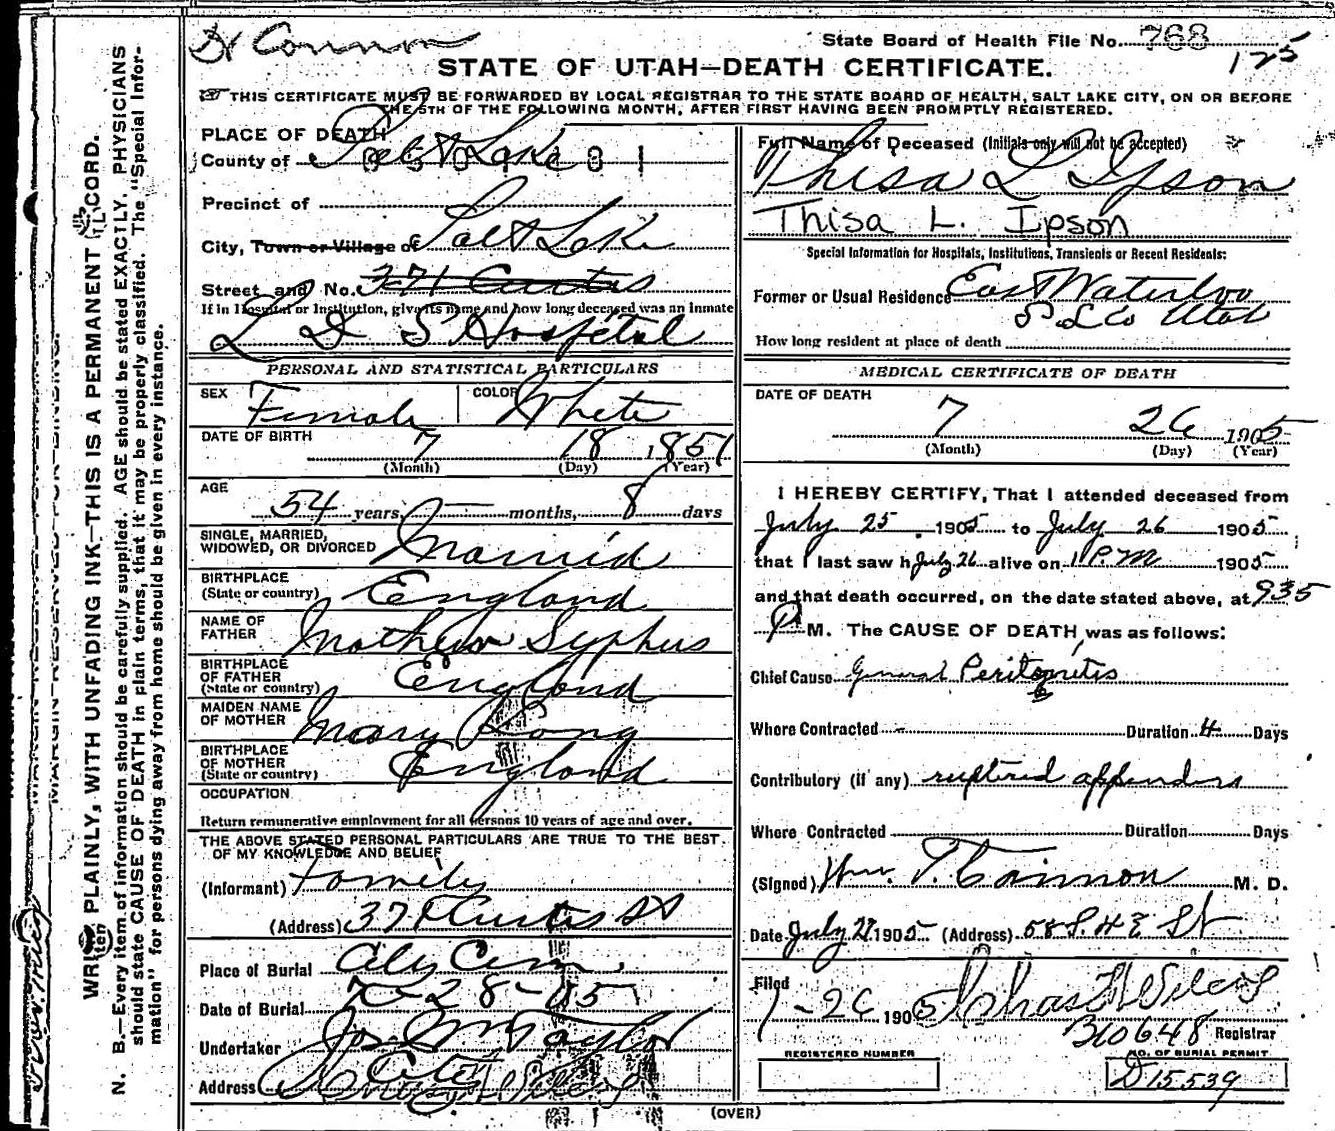 State Board of Health File No. 768
125
STATE OF UTAH—DEATH CERTIFICATE.
THIS CERTIFICATE MUST BE FORWARDED BY LOCAL REGISTRAR TO THE STATE BOARD OF HEALTH, SALT LAKE CITY, ON OR BEFORE
THE 5TH OF THE FOLLOWING MONTH, AFTER FIRST HAVING BEEN PROMPTLY REGISTERED.
PLACE OF DEATH
County of Salt Lake
Precinct of
City, Town or Village of Salt Lake
Street and No. 371 Curtis
If in Hospital or Institution, give its name and how long deceased was an inmate
L D S Hospital
PERSONAL AND STATISTICAL PARTICULARS
SEX Female COLOR White
DATE OF BIRTH 7 18 1851
(Month) (Day) (Year)
AGE
54 years, — months, 8 days
SINGLE, MARRIED,
WIDOWED, OR DIVORCED Married
BIRTHPLACE
(State or country) England
NAME OF
FATHER Mathew Syphus
BIRTHPLACE
OF FATHER
(State or country) England
MAIDEN NAME
OF MOTHER Mary Long
BIRTHPLACE
OF MOTHER
(State or country) England
OCCUPATION
Return remunerative employment for all persons 10 years of age and over.
THE ABOVE STATED PERSONAL PARTICULARS ARE TRUE TO THE BEST
OF MY KNOWLEDGE AND BELIEF
(Informant) Family
(Address) 371 Curtis St
Place of Burial City Cem.
Date of Burial 7-28-05
Undertaker Jos. Wm Taylor
Address City
Full Name of Deceased (Initials only will not be accepted)
Thisa L Ipson
Thisa L. Ipson
Special Information for Hospitals, Institutions, Transients or Recent Residents:
Former or Usual Residence East Waterloo
S. L Co Utah
How long resident at place of death
MEDICAL CERTIFICATE OF DEATH
DATE OF DEATH
7 26 1905
(Month) (Day) (Year)
I HEREBY CERTIFY, That I attended deceased from
July 25 1905 to July 26 1905
that I last saw h July 26 alive on 1 P.M 1905
and that death occurred, on the date stated above, at 935
P M. The CAUSE OF DEATH was as follows:
Chief Cause General Peritonitis
Where Contracted - Duration 4 Days
Contributory (if any) ruptured appendix
Where Contracted Duration Days
(Signed) Wm. T. Cannon M. D.
Date July 27 1905 (Address) 58 S. 4 E St
Filed
7-26 1905
310648 Registrar
REGISTERED NUMBER
NO. OF BURIAL PERMIT
D 15539
(OVER)
WRITE PLAINLY, WITH UNFADING INK—THIS IS A PERMANENT RECORD.
N. B.—Every item of information should be carefully supplied. AGE should be stated EXACTLY. PHYSICIANS
should state CAUSE OF DEATH in plain terms, that it may be properly classified. The "Special Infor-
mation" for persons dying away from home should be given in every instance.
MARGIN RESERVED FOR BINDING.